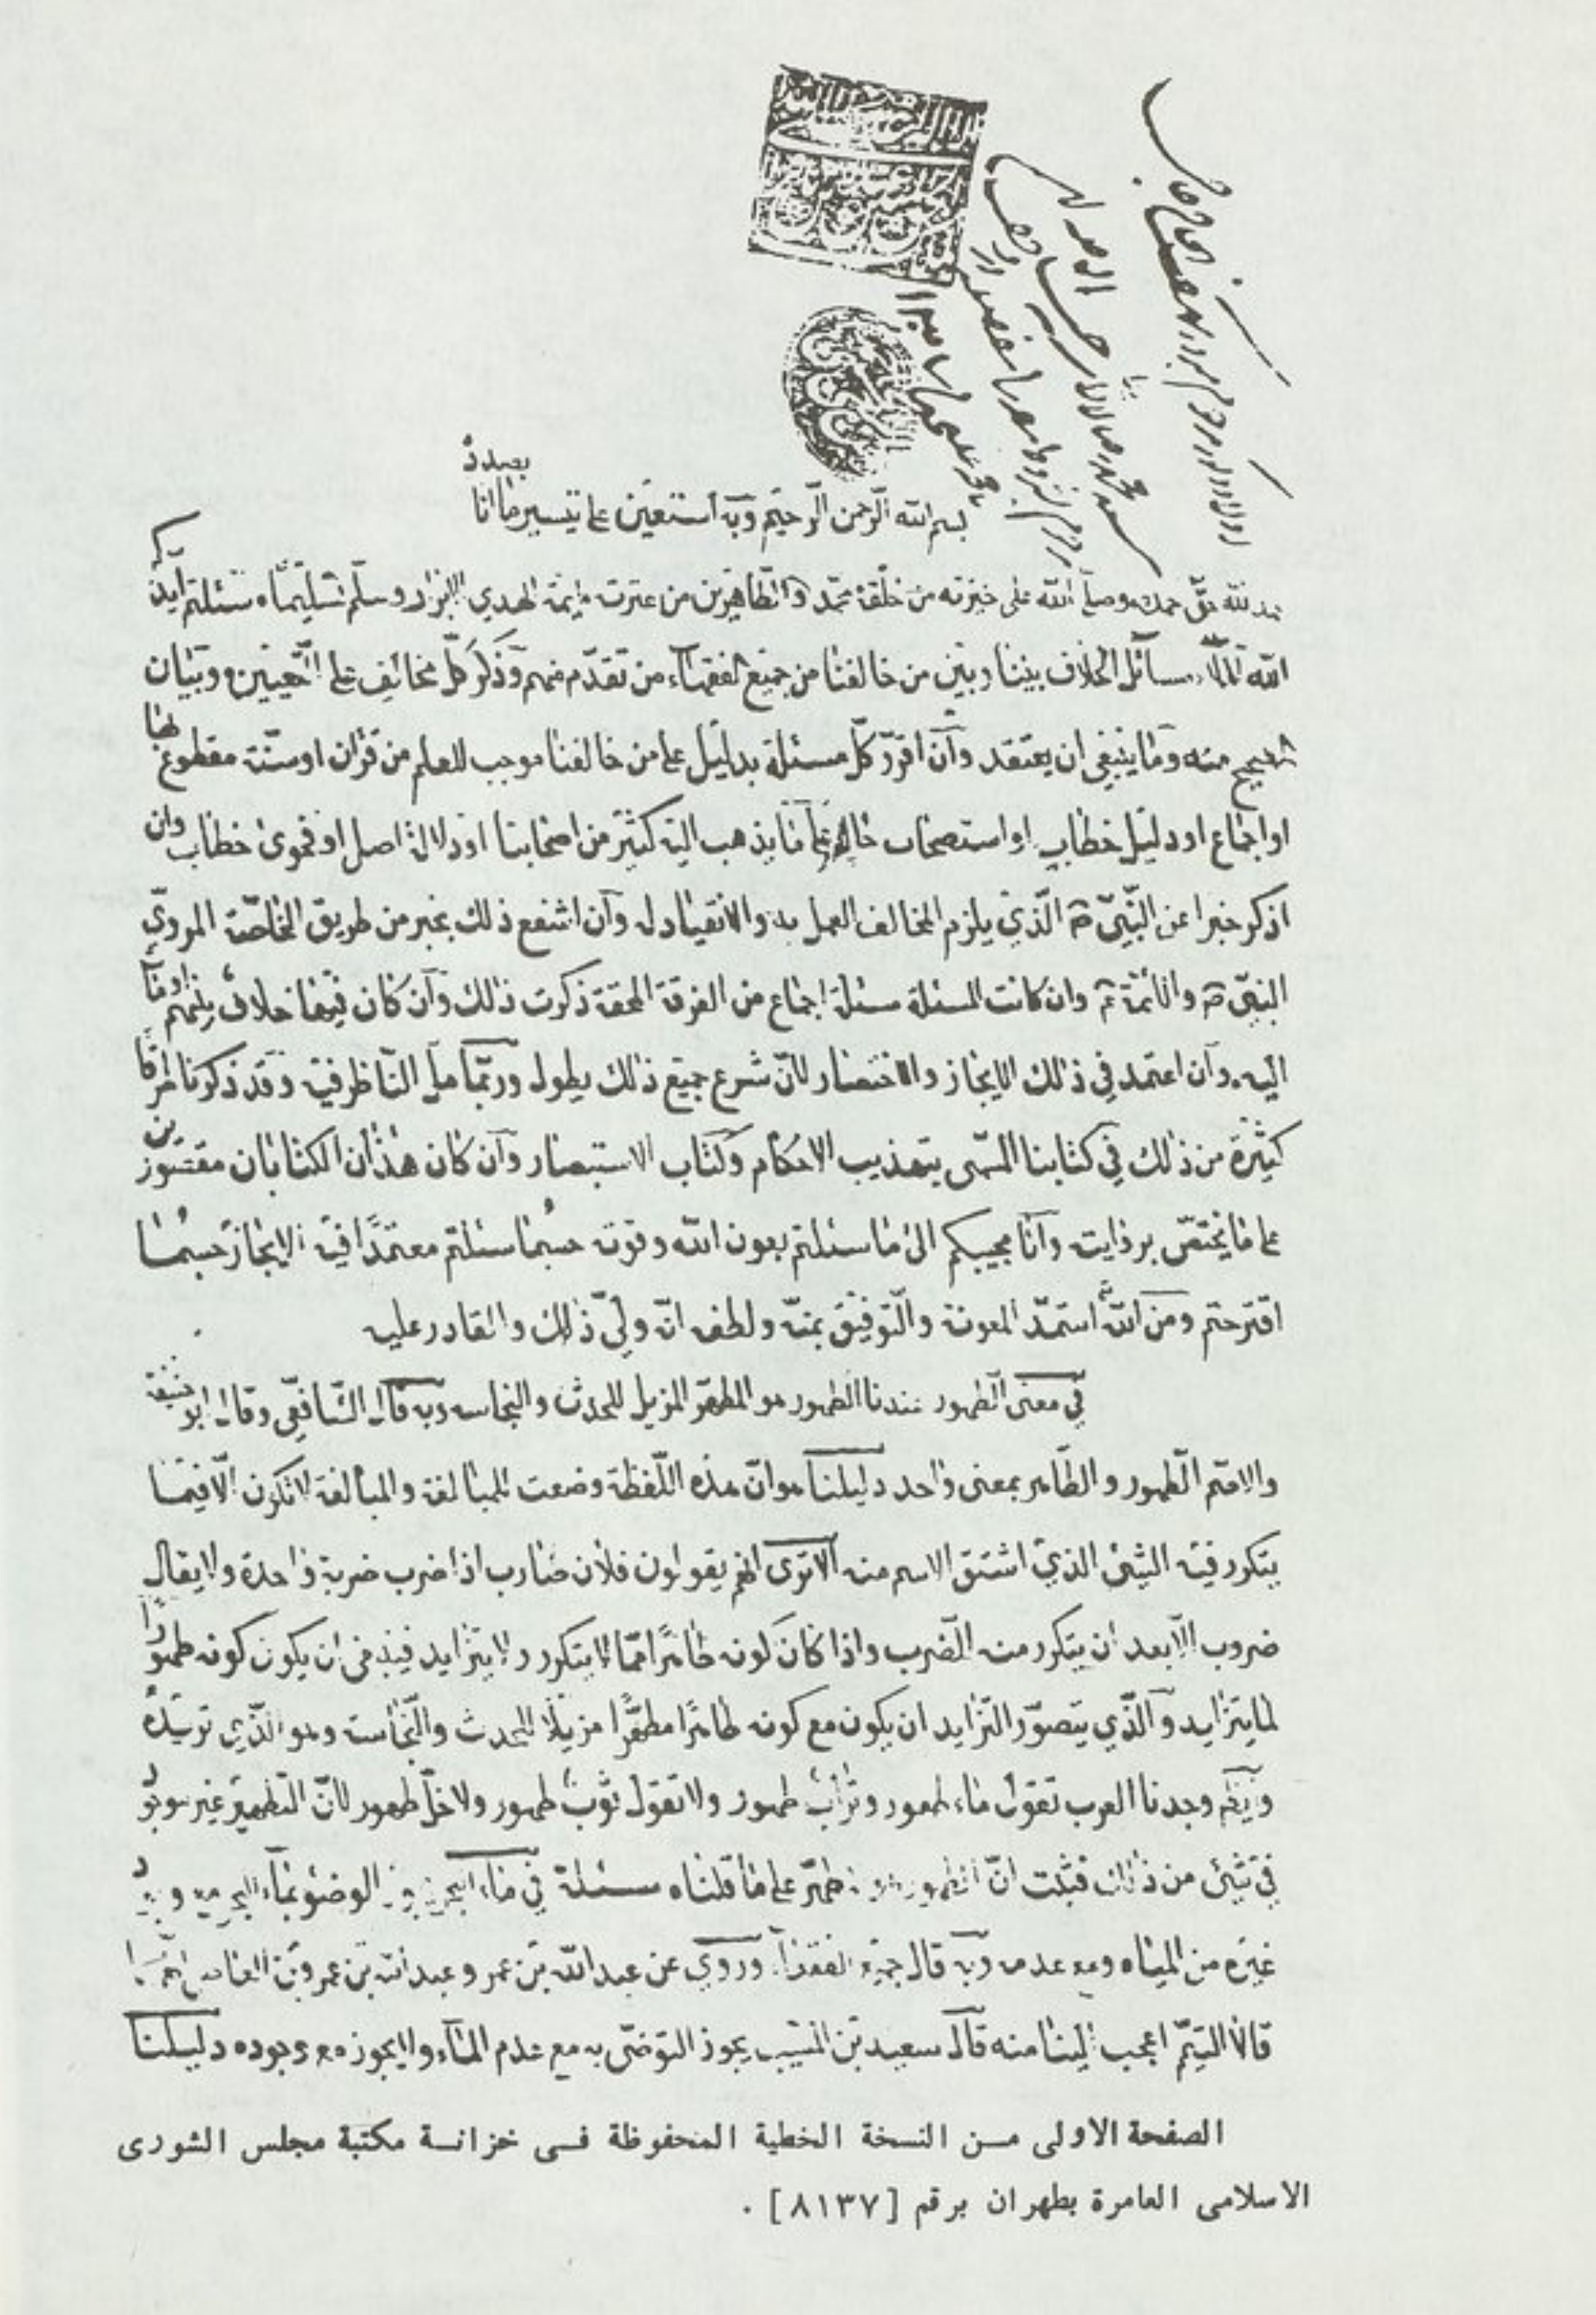 بصدده
بسم الله الرحمن الرحيم وبه أستعين على تيسير ما انا
لله حق حمده وصلى الله على خيرته من خلقه محمد والطاهرين من عترته ائمة الهدى الابرار وسلم تسليما سئلتم ايدكم
الله املاء مسائل الخلاف بيننا وبين من خالفنا من جميع الفقهاء من تقدم منهم وذكر كل مخالف على التعيين وبيان
الصحيح منه وما ينبغي ان يعتقد وأن اقرر كل مسئلة بدليل على من خالفنا موجب للعلم من قران او سنة مقطوع بها
او اجماع او دليل خطاب او استصحاب حال على ما يذهب اليه كثير من اصحابنا او دلالة اصل او فحوى خطاب وان
اذكر خبرا عن النبي ص الذي يلزم المخالف العمل به والانقياد له وأن اشفع ذلك بخبر من طريق الخاصة المروي
النبي ص والائمة ع وان كانت المسئلة مسئلة اجماع من الفرقة المحقة ذكرت ذلك وأن كان فيها خلاف بينهم اومأت
اليه وأن اعتمد في ذلك الايجاز والاختصار لأن شرح جميع ذلك يطول وربما مل الناظر فيه وقد ذكرنا طرفا
كثيرة من ذلك في كتابنا المسمى بتهذيب الاحكام وكتاب الاستبصار وأن كان هذان الكتابان مقصورين
على ما يختص برواياته وأنا مجيبكم الى ما سئلتم بعون الله وقوته حسبما سئلتم معتمدًا فيه الايجاز حسبما
اقترحتم ومن الله استمد المعونة والتوفيق بمنه ولطفه انه ولي ذلك والقادر عليه
في معنى الطهور عندنا الطهور هو المطهر المزيل للحدث والنجاسه وبه قال الشافعي وقال ابو حنيفة
والاصم الطهور والطاهر بمعنى واحد دليلنا هو ان هذه اللفظة وضعت للمبالغة والمبالغة لا تكون الا فيما
يتكرر فيه الشئ الذي اشتق الاسم منه الا ترى انهم يقولون فلان ضارب اذا ضرب ضربة واحدة ولا يقال
ضروب الا بعد ان يتكرر منه الضرب واذا كان كونه طاهرًا مما لا يتكرر ولا يتزايد فينبغي ان يكون كونه طهورًا
لما يتزايد والذي يتصور التزايد ان يكون مع كونه طاهرًا مطهرًا مزيلًا للحدث والنجاسة وهو الذي نريده
وايضا وجدنا العرب تقول ماء طهور وتراب طهور ولا تقول ثوب طهور ولا خل طهور لأن التطهير غير موجود
في شئ من ذلك فثبت ان الطهور هو المطهر على ما قلناه مسئلة في ماء البحر يجوز الوضوء بماء البحر مع وجود
غيره من المياه ومع عدمه وبه قال جميع الفقهاء وروي عن عبدالله بن عمر وعبدالله بن عمرو بن العاص انهما
قالا التيمم اعجب الينا منه قال سعيد بن المسيب يجوز التوضى به مع عدم الماء ولا يجوز مع وجوده دليلنا
الصفحة الاولى من النسخة الخطية المحفوظة فى خزانة مكتبة مجلس الشورى
الاسلامى العامرة بطهران برقم [٨١٣٧] .